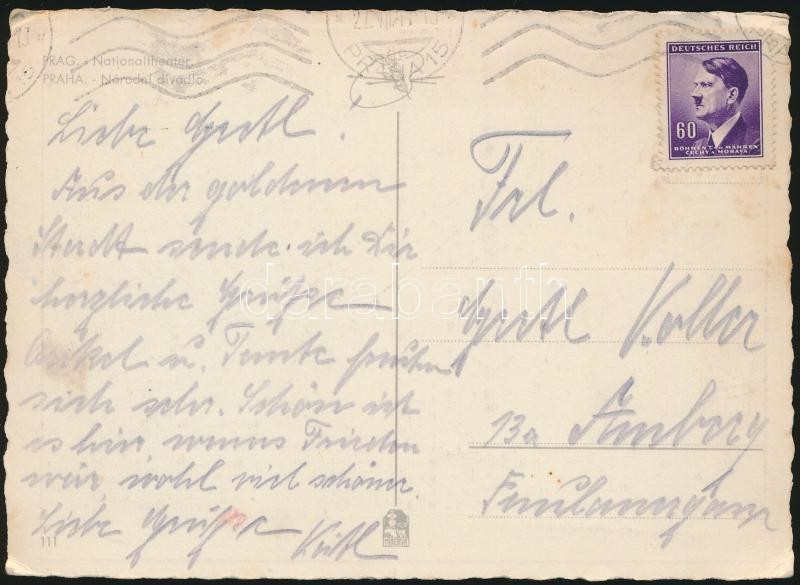 PRAG. - Nationaltheater.
PRAHA. - Národní divadlo.
PRAHA 15
DEUTSCHES REICH
60
BÖHMEN u. MÄHREN
ČECHY a MORAVA
Liebe Gretl.
Aus der goldenen
Stadt sende ich Dir
herzliche Grüße
Onkel u. Tante freuten
sich sehr. Schön ist
es hier wenns Frieden
wär, wohl viel schöner.
Liebe Grüße
111
Frl.
Gretl Koller
13a Amberg
darabanth